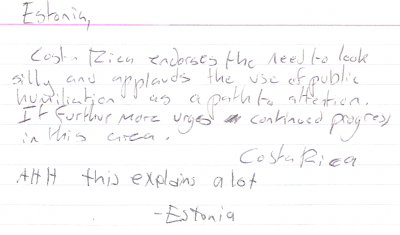 Estonia,
Costa Rica endorses the need to look
silly and applauds the use of public
humiliation as a path to attention.
It furthur more urges continued progress
in this area.
Costa Rica
AHH this explains a lot
-Estonia